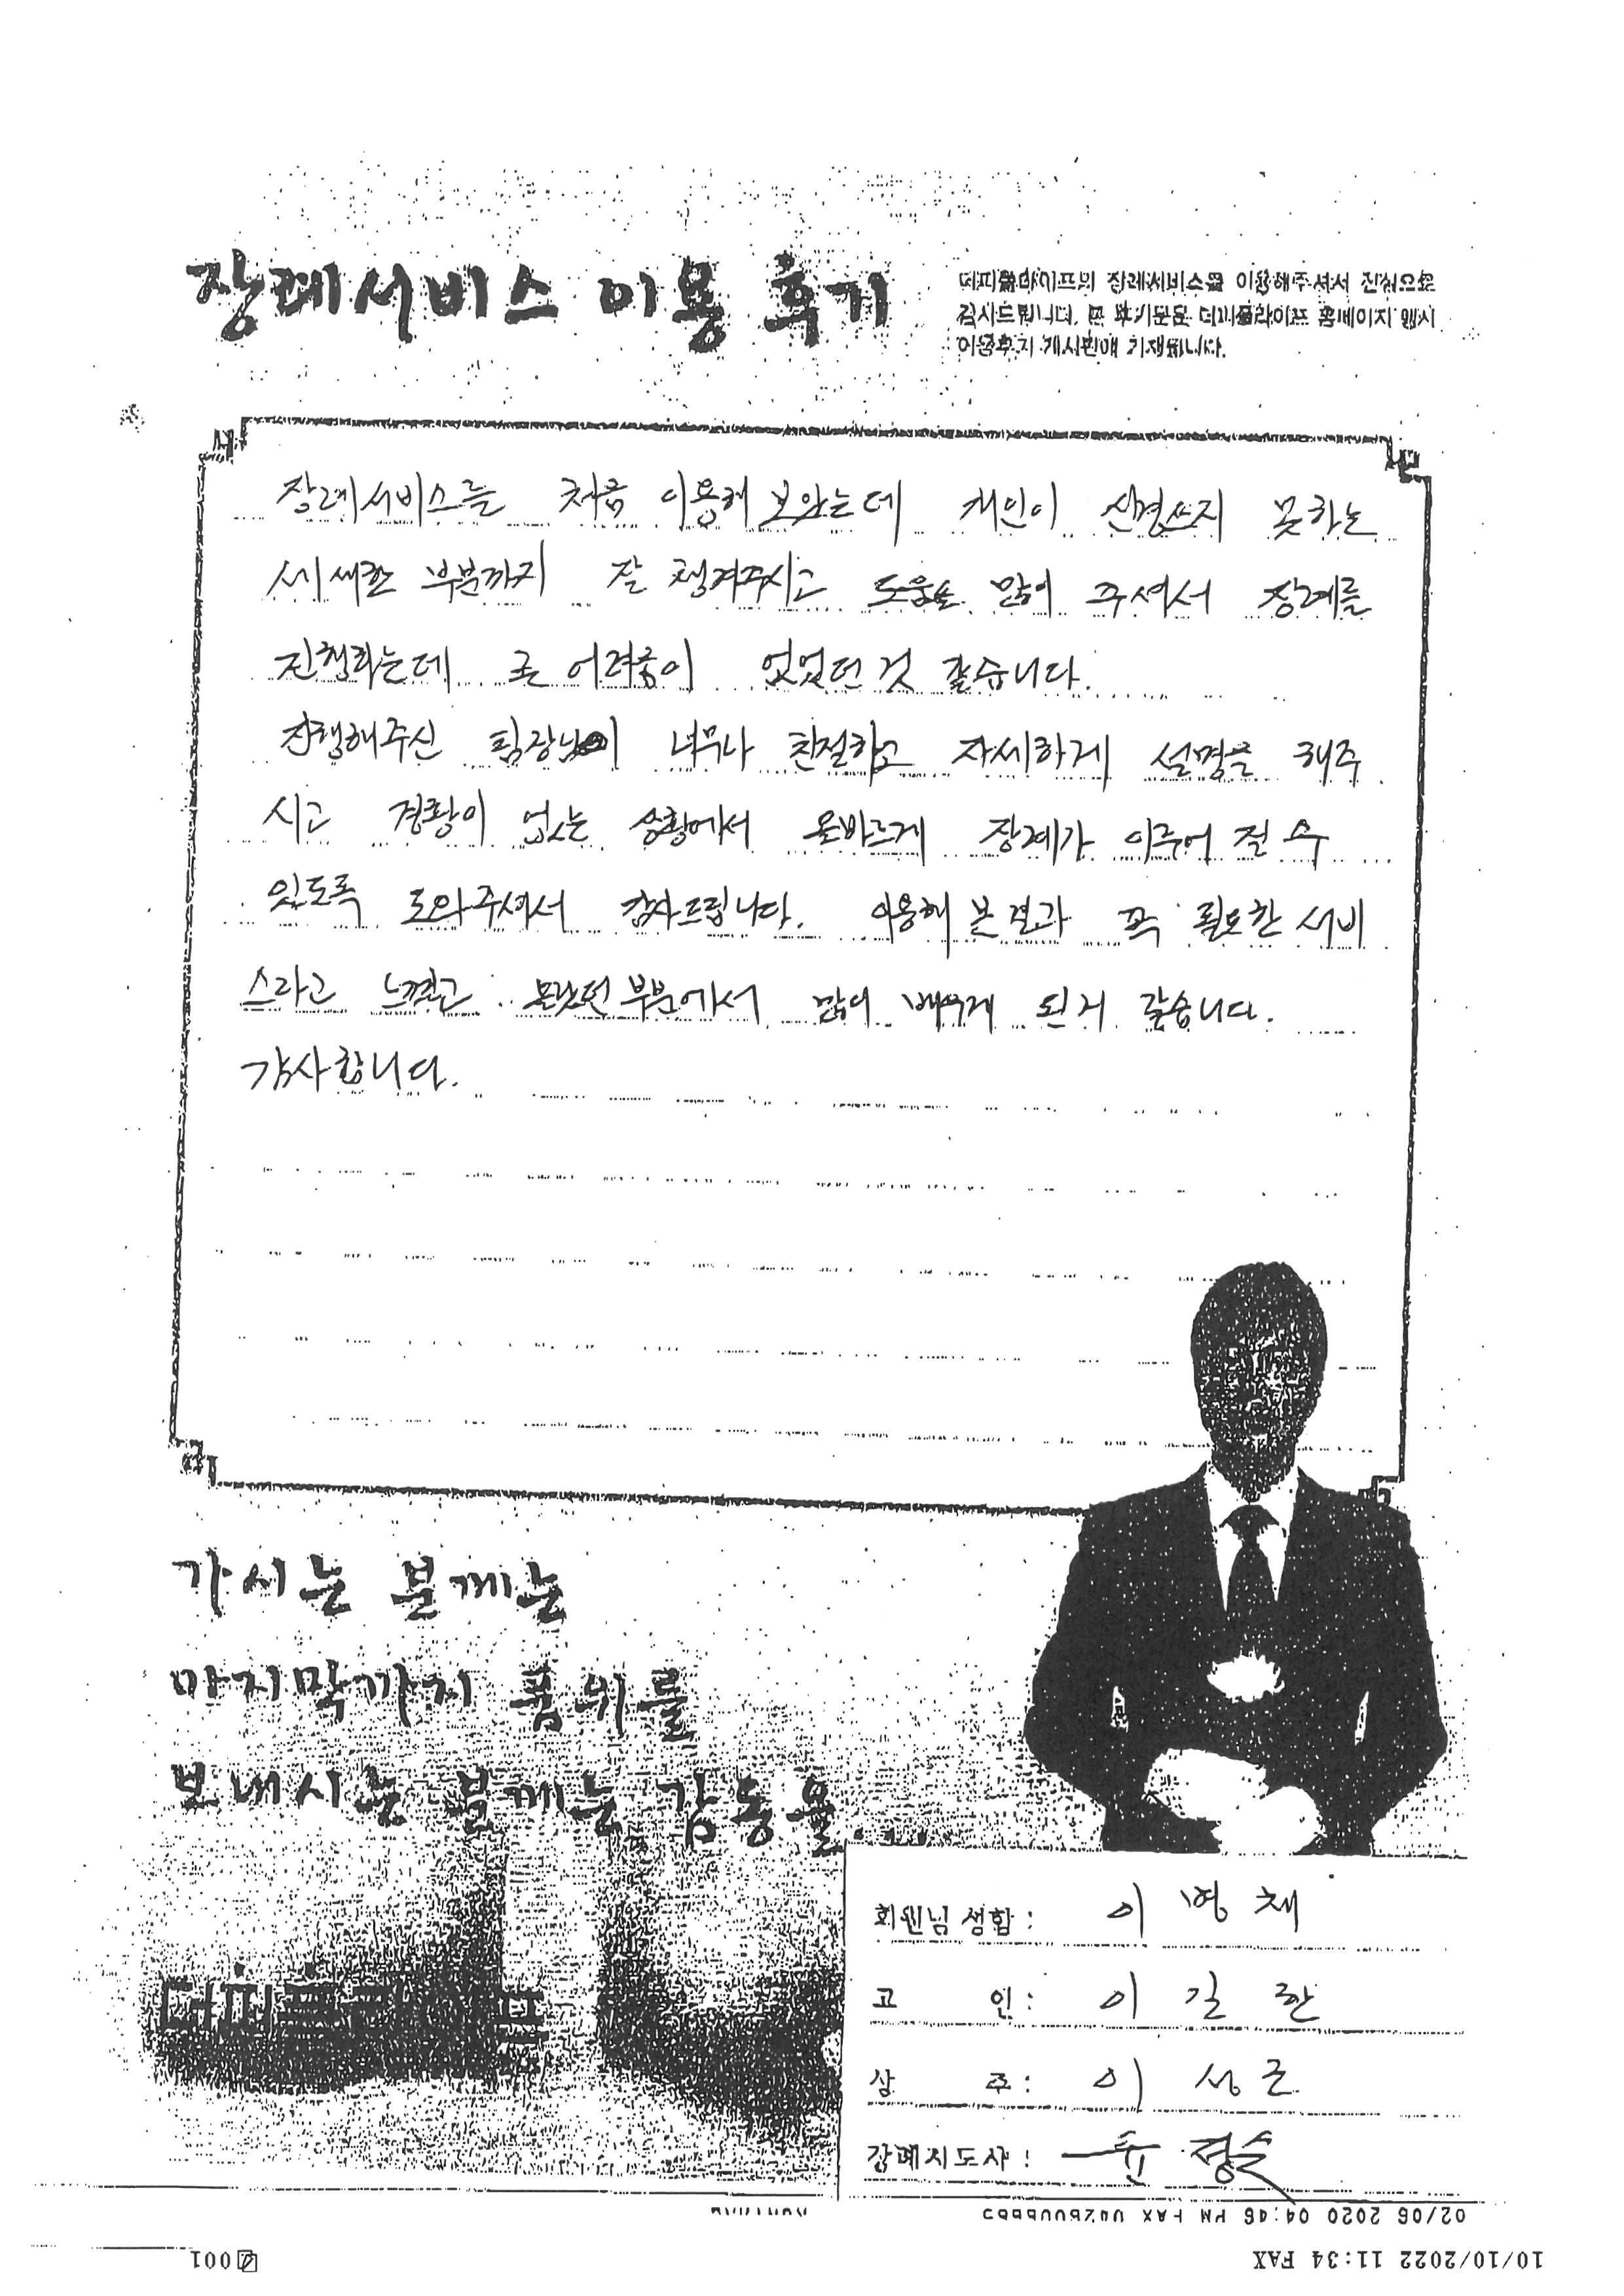 장례서비스 이용 후기
더피플라이프의 장례서비스를 이용해주셔서 진심으로
감사드립니다. 본 후기문은 더피플라이프 홈페이지 행사
이용후기 게시판에 기재됩니다.
장례서비스를 처음 이용해 보았는데 개인이 신경쓰지 못하는
세세한 부분까지 잘 챙겨주시고 도움도 많이 주셔서 장례를
진행하는데 큰 어려움이 없었던 것 같습니다.
진행해주신 팀장님이 너무나 친절하고 자세하게 설명을 해주
시고 경황이 없는 상황에서 올바르게 장례가 이루어 질 수
있도록 도와주셔서 감사드립니다. 이용해 본 결과 꼭 필요한 서비
스라고 느꼈고 몰랐던 부분에서 많이 배우게 된거 같습니다.
감사합니다.
가시는 분께는
마지막까지 품위를
보내시는 분께는 감동을....
더피플라이프
회원님 성함: 이 병 채
고 인: 이 길 환
상 주: 이 성 근
장례지도사: 윤 정
02/06 2020 04:46 PM FAX
10/10/2022 11:34 FAX
001